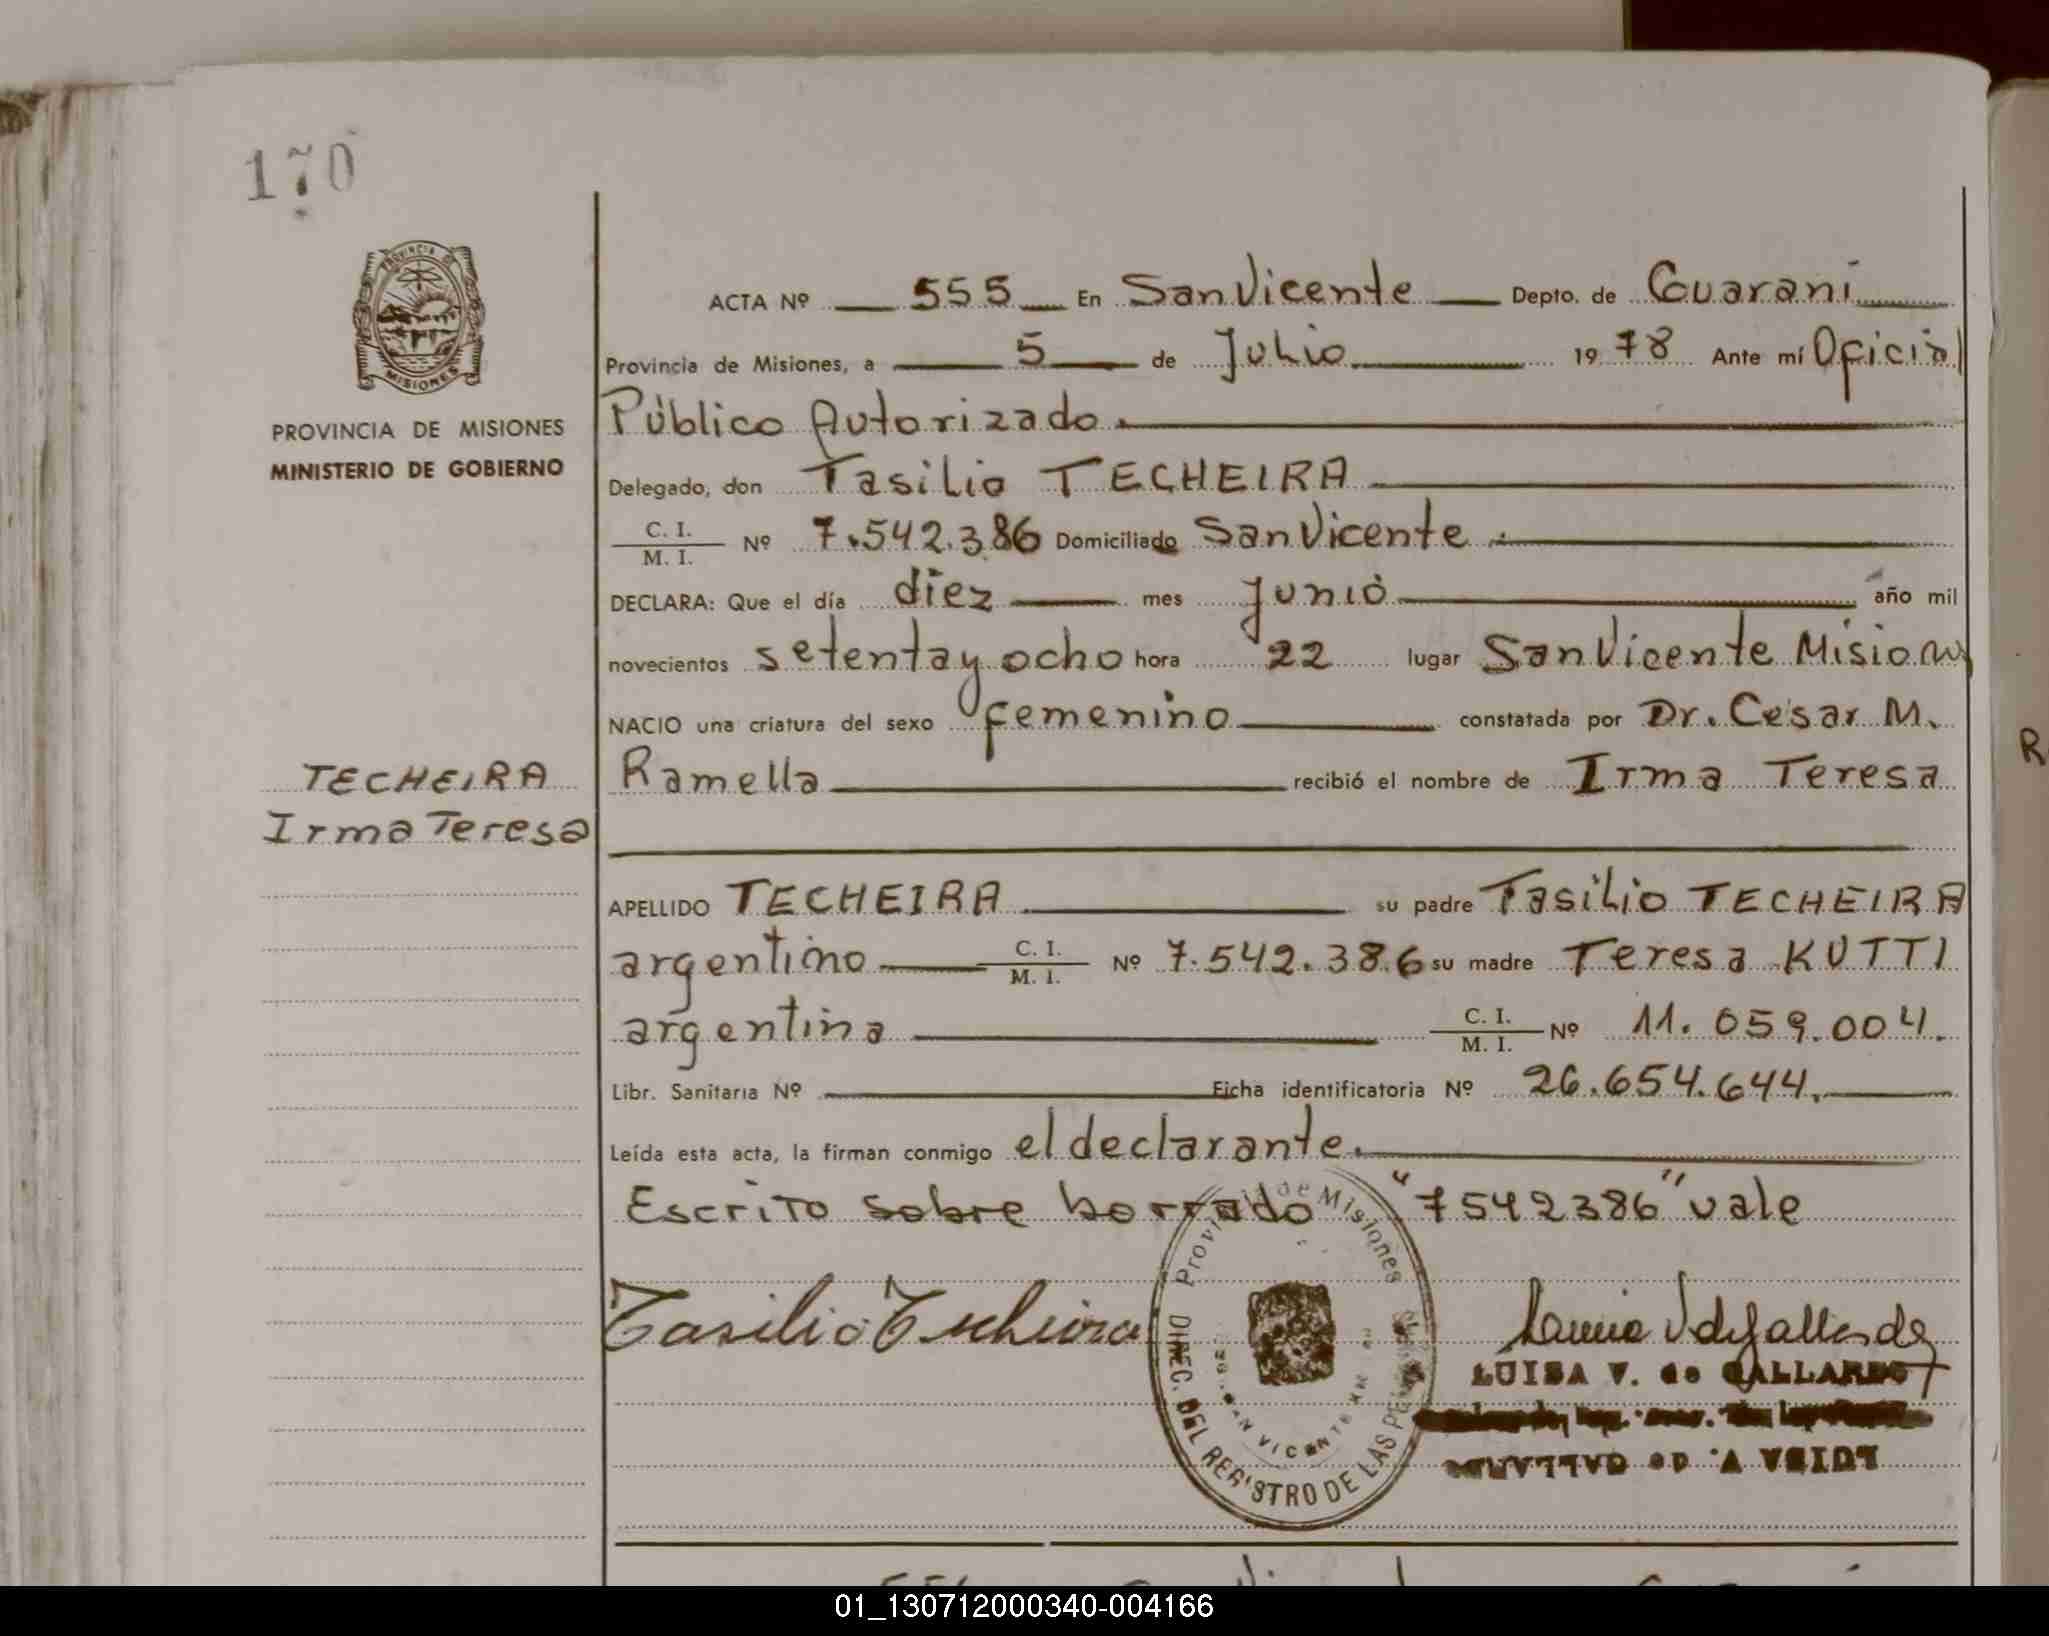 170
PROVINCIA DE MISIONES
PROVINCIA DE MISIONES
MINISTERIO DE GOBIERNO
TECHEIRA
Irma Teresa
ACTA Nº 555 En San Vicente Depto. de Guaraní
Provincia de Misiones, a 5 de Julio 1978 Ante mí Oficial
Público Autorizado.
Delegado, don Tasilio TECHEIRA
C. I. / M. I. Nº 7.542.386 Domiciliado San Vicente.
DECLARA: Que el día diez mes Junio año mil
novecientos setenta y ocho hora 22 lugar San Vicente Misiones
NACIO una criatura del sexo femenino constatada por Dr. Cesar M.
Ramella recibió el nombre de Irma Teresa
APELLIDO TECHEIRA su padre Tasilio TECHEIRA
argentino C. I. / M. I. Nº 7.542.386 su madre Teresa KUTTI
argentina C. I. / M. I. Nº 11.059.004.
Libr. Sanitaria Nº Ficha identificatoria Nº 26.654.644.
Leída esta acta, la firman conmigo el declarante.
Escrito sobre borrado "7542386" vale
Tasilio Techeira
Provincia de Misiones
DIREC. DEL REGISTRO DE LAS
SAN VICENTE
LUISA V. de GALLARDO
LUISA V. de GALLARDO
R
01_130712000340-004166